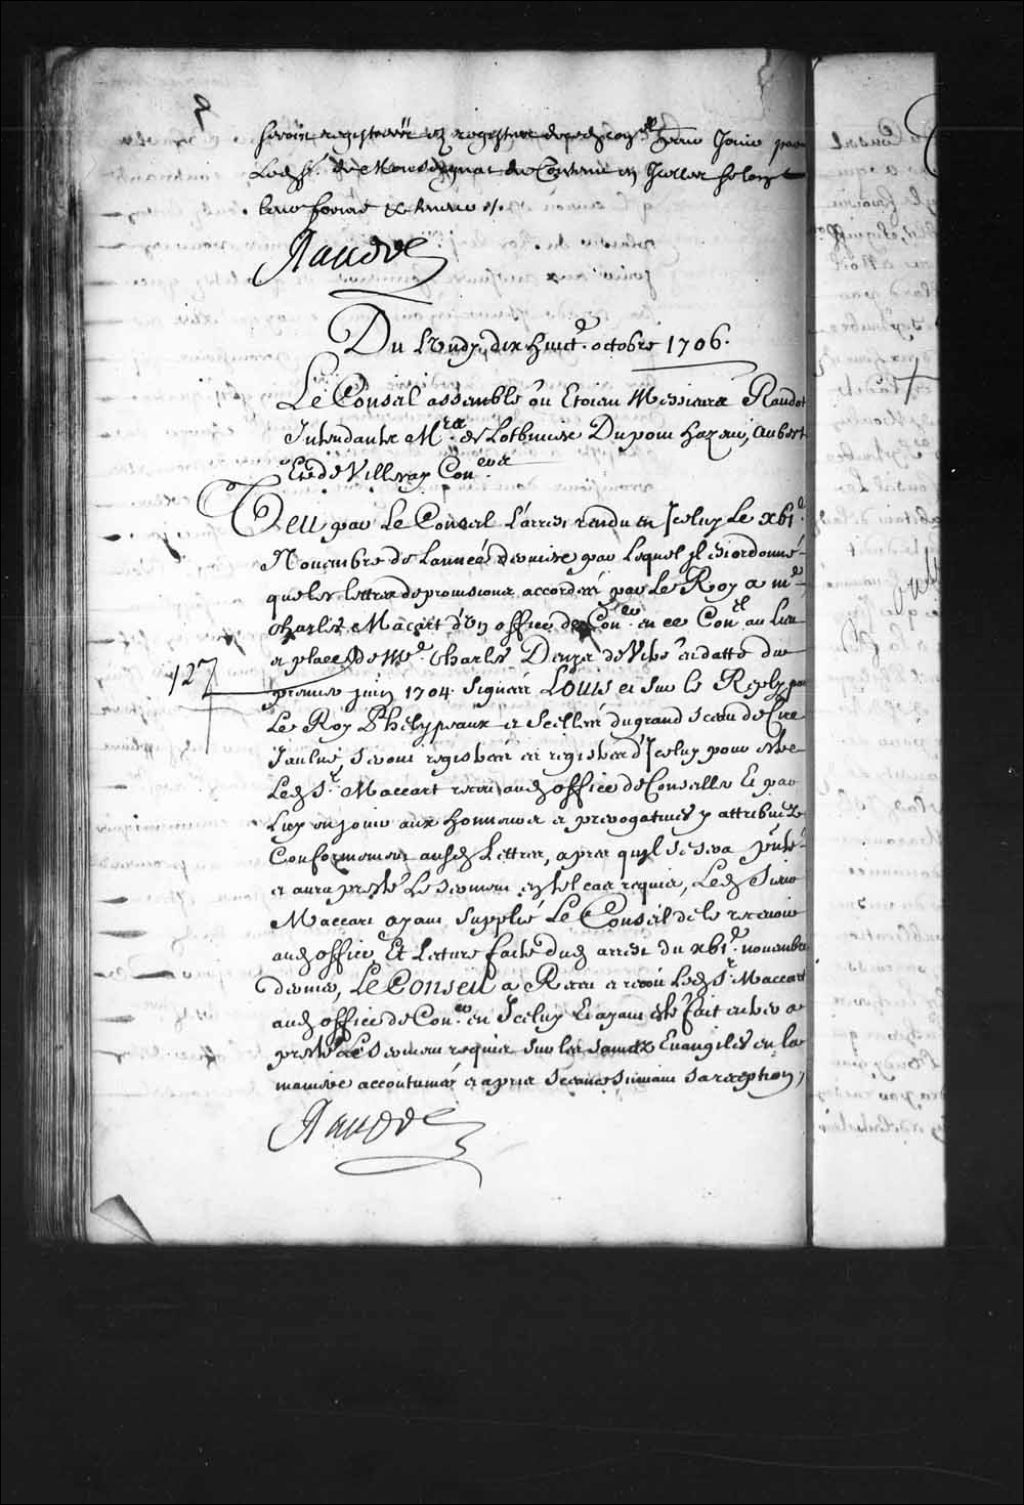 seront registrées ez registres dud. con.el pour Jouir par
Led. S.r de Monseignat du Contenu en Icelles selon
leur forme & teneur ./.
Raudot
Du Lundy dix huict.e octobre 1706.
Le Conseil assemblé ou Etoient Messieurs Raudot
Intendant M.rs de Lotbiniere Dupont hazeur, Aubert
Et de Villeray Con.ers
Veu par Le Conseil L'arrest rendu en Iceluy Le xbi.e
Novembre de L'année derniere par Lequel jl est ordonné
que les lettres de provisions accordées par Le Roy a m.e
Charles Macart d'un office de Con.er en ce Con.el au Lieu
127
et place de M.e Charles Denys de Vitré en datte du
premier juin 1704 signées LOUIS et sur le Reply par
Le Roy Phelypeaux et Scellées du grand sceau de Cire
Jaulne, seront registrées ez registres d'Iceluy pour estre
Led. S.r Maccart receu aud. office de Conseiller Et par
Luy en jouir aux honneurs et prerogatives y attribuez
Conformement ausd. Lettres, apres qu'jl se sera pnté
et aura presté Le serment en tel cas requis, Led. Sieur
Maccart ayant supplié Le Conseil de le recevoir
aud. office, Et Lecture faite dud. arrest du xbi.e novembre
dernier, Le Conseil a Receu et reçoit Led. S.r Maccart
aud. office de Con.er en Iceluy Et ayant esté fait entrer a
presté Le Serment requis sur les saints Evangiles en la
maniere accoutumée et apris seance suivant sa reception,
Raudot